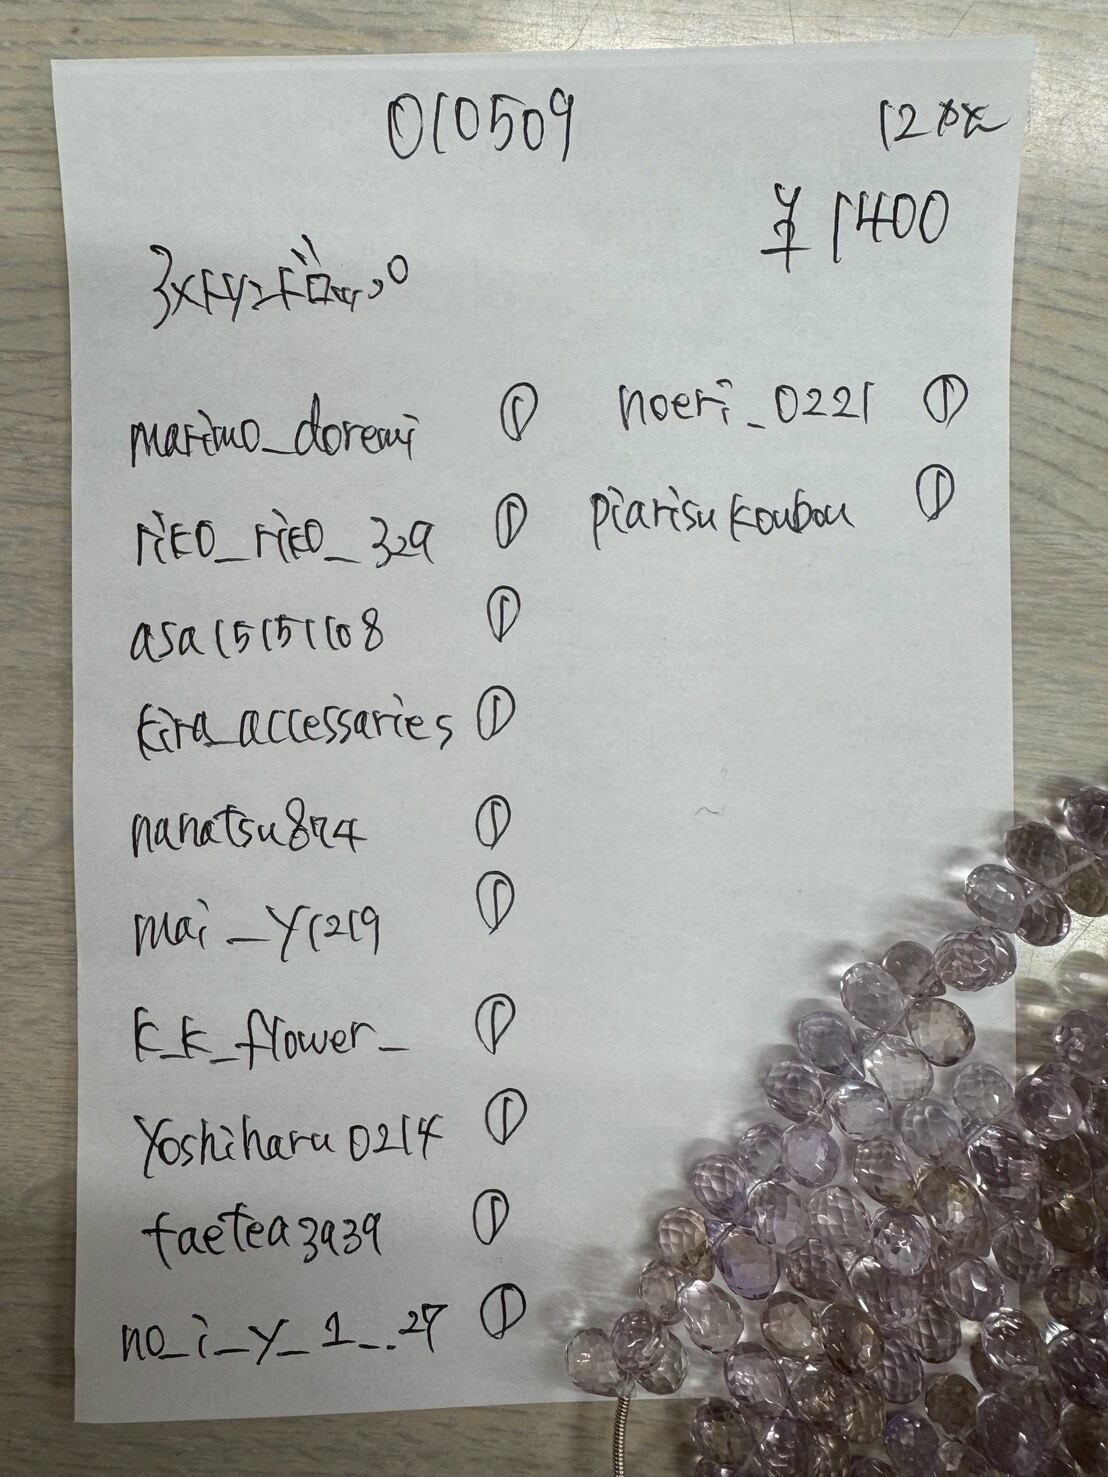 010509
12粒
¥1400
アメトリンドロップ
marimo_doremi ①
riko_riko_329 ①
asa15151108 ①
kira_accessaries ①
nanatsu874 ①
mai_y1219 ①
k_k_flower_ ①
yoshiharu0214 ①
taetea3939 ①
no_i_y_1_..27 ①
noeri_0221 ①
piarisukoubou ①